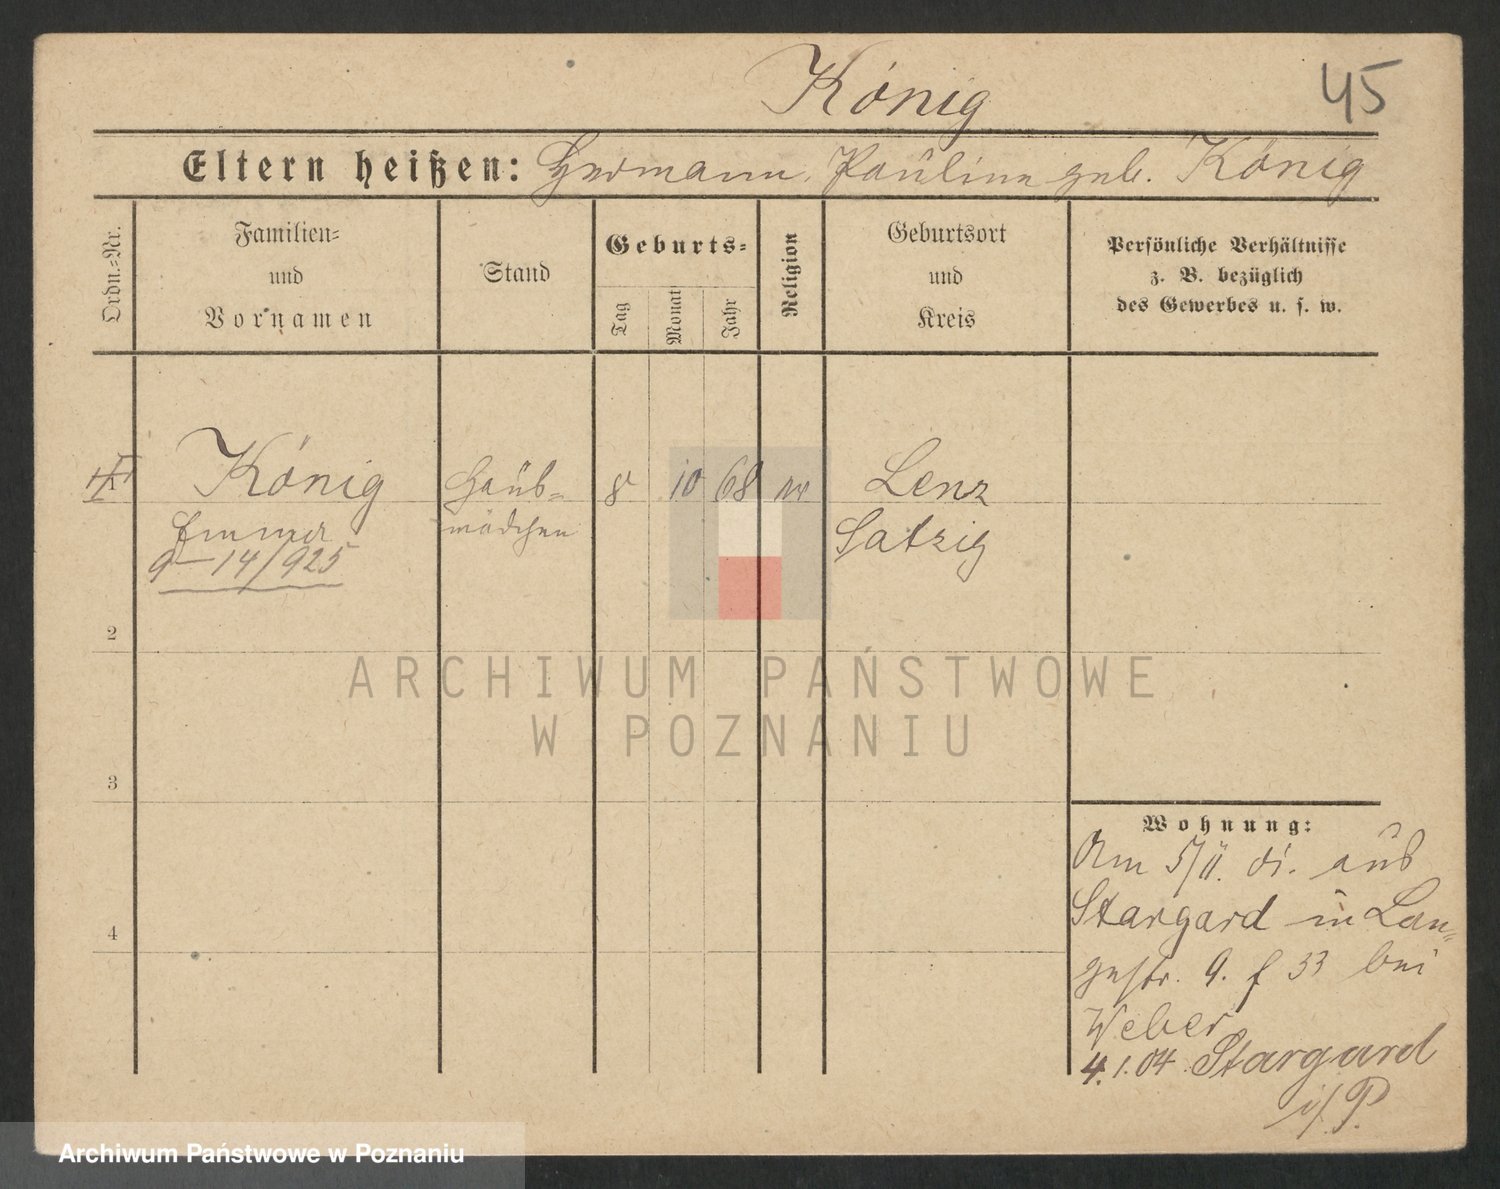 König 45
Eltern heißen: Hermann, Pauline geb. König
Ordn.=Nr.
Familien=
und
Vornamen
Stand
Geburts=
Tag
Monat
Jahr
Religion
Geburtsort
und
Kreis
Persönliche Verhältnisse
z. B. bezüglich
des Gewerbes u. s. w.
1 König Haus= 8 10 68 Lenz
Emma mädchen Satzig
9-14/925
2
3
4
Wohnung:
Am 5/11. aus
Stargard in Lan=
gestr. 9. 33 bei
Weber
4.1.04. Stargard
i/P.
ARCHIWUM PAŃSTWOWE
W POZNANIU
Archiwum Państwowe w Poznaniu